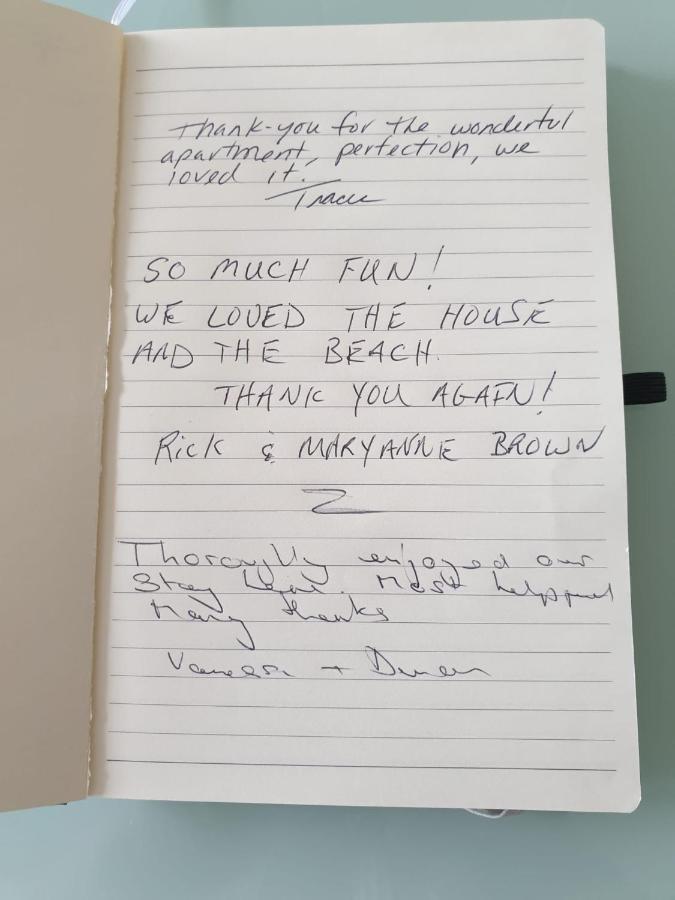 Thank-you for the wonderful
apartment, perfection, we
loved it.
SO MUCH FUN!
WE LOVED THE HOUSE
AND THE BEACH.
THANK YOU AGAIN!
RICK & MARYANNE BROWN
Thoroughly enjoyed our
Stay here. Most helpful
Many thanks
Vanessa +